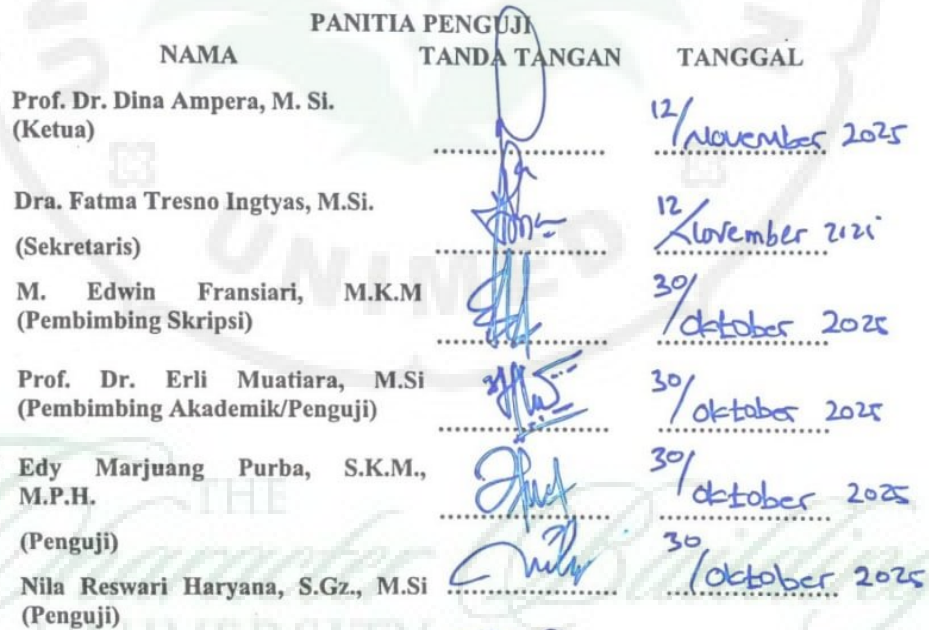 PANITIA PENGUJI
NAMA TANDA TANGAN TANGGAL
Prof. Dr. Dina Ampera, M. Si.
(Ketua)
12/November 2025
Dra. Fatma Tresno Ingtyas, M.Si.
(Sekretaris)
12/November
UNIMED
M. Edwin Fransiari, M.K.M
(Pembimbing Skripsi)
30/Oktober 2025
Prof. Dr. Erli Muatiara, M.Si
(Pembimbing Akademik/Penguji)
30/Oktober 2025
Edy Marjuang Purba, S.K.M.,
M.P.H.
30/Oktober 2025
THE
(Penguji)
Character Building
Nila Reswari Haryana, S.Gz., M.Si
30/Oktober 2025
(Penguji)
UNIVERSITY